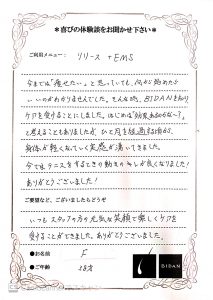 ＊喜びの体験談をお聞かせ下さい＊
ご利用メニュー： リリース + EMS
今までは「痩せたい」と思っていても、何から始めたら
いいのかわかりませんでした。そんな時、BIDANを知り
ケアを受けることにしました。はじめは「効果あるのかな〜」
と考えることもありましたが、ひと月を経過した頃から
身体が軽くなっていく実感が湧いてきました。
今ではテニスをするときの動きのキレが良くなりました!
ありがとうございました!
ご要望など、ございましたらどうぞ
いつもスタッフの方の元気な笑顔で楽しくケアを
受けることができました。ありがとうございました。
●お名前 F
●ご年齢 38才
BIDAN